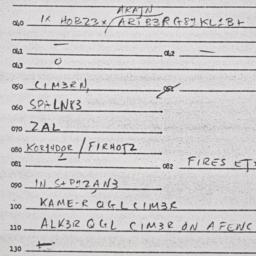 AKAIN
040 1X HOBZ3X/ARIB3RG87KL1B+
041 — 042 —
043 O
050 CIM3RN, 051
060 SPALNK3
070 ZAL
080 KORYDOR / FIRHOTZ
081 082 FIRES ETS
090 IN S+PHZAN3
100 KAME-R QGL CIM3R
110 ALK3R QGL CIM3R ON A FENC
130